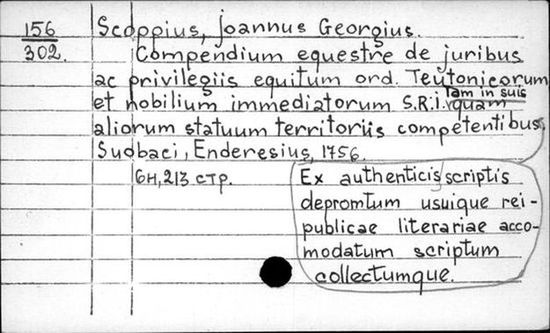 156
302.
Scoppius, Joannus Georgius.
Compendium equestre de juribus
ac privilegiis equitum ord. Teutonicorum
et nobilium immediatorum S.R.i. tam in suis quam
aliorum statuum territoriis competentibus
Suobaci, Enderesius, 1756.
6н, 213 стр.
Ex authenticis scriptis
depromtum usuique rei-
publicae literariae acco-
modatum scriptum
collectumque.